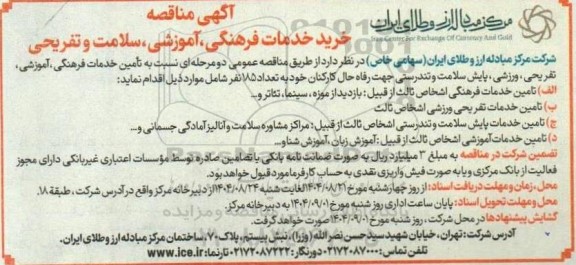 مرکز مبادله ارز و طلای ایران
Iran Center For Exchange Of Currency And Gold
آگهی مناقصه
خرید خدمات فرهنگی، آموزشی، سلامت و تفریحی
شرکت مرکز مبادله ارز و طلای ایران (سهامی خاص) در نظر دارد از طریق مناقصه عمومی دو مرحله‌ای نسبت به تأمین خدمات فرهنگی، آموزشی،
تفریحی، ورزشی، پایش سلامت و تندرستی جهت رفاه حال کارکنان خود به تعداد ۱۸۵ نفر شامل موارد ذیل اقدام نماید:
الف) تامین خدمات فرهنگی اشخاص ثالث از قبیل: بازدید از موزه، سینما، تئاتر و...
ب) تامین خدمات تفریحی ورزشی اشخاص ثالث
ج) تامین خدمات پایش سلامت و تندرستی اشخاص ثالث از قبیل: مراکز مشاوره سلامت و آنالیز آمادگی جسمانی و...
د) تامین خدمات آموزشی اشخاص ثالث از قبیل: آموزش زبان، آموزش شنا و...
تضمین شرکت در مناقصه به مبلغ ۳ میلیارد ریال به صورت ضمانت نامه بانکی یا تضامین صادره توسط مؤسسات اعتباری غیربانکی دارای مجوز
فعالیت از بانک مرکزی و یا به صورت فیش واریزی نقدی به حساب کارفرما مورد قبول خواهد بود.
محل، زمان و مهلت دریافت اسناد: از روز چهارشنبه مورخ ۱۴۰۴/۰۸/۲۱ لغایت شنبه ۱۴۰۴/۰۸/۲۴ از دبیرخانه مرکز واقع در آدرس شرکت، طبقه ۱۸.
محل و مهلت تحویل اسناد: پایان ساعت اداری روز شنبه مورخ ۱۴۰۴/۰۹/۰۱ به دبیرخانه مرکز.
گشایش پیشنهادها در محل شرکت، روز شنبه مورخ ۱۴۰۴/۰۹/۰۱ صورت خواهد گرفت.
آدرس شرکت: تهران، خیابان شهید سیدحسن نصرالله (وزرا)، نبش بیستم، پلاک ۷۰، ساختمان مرکز مبادله ارز و طلای ایران.
تلفن تماس: ۰۲۱۷۲۰۸۷۰۰۰ دورنگار: ۰۲۱۷۲۰۸۷۲۲۲ تارنما: www.ice.ir